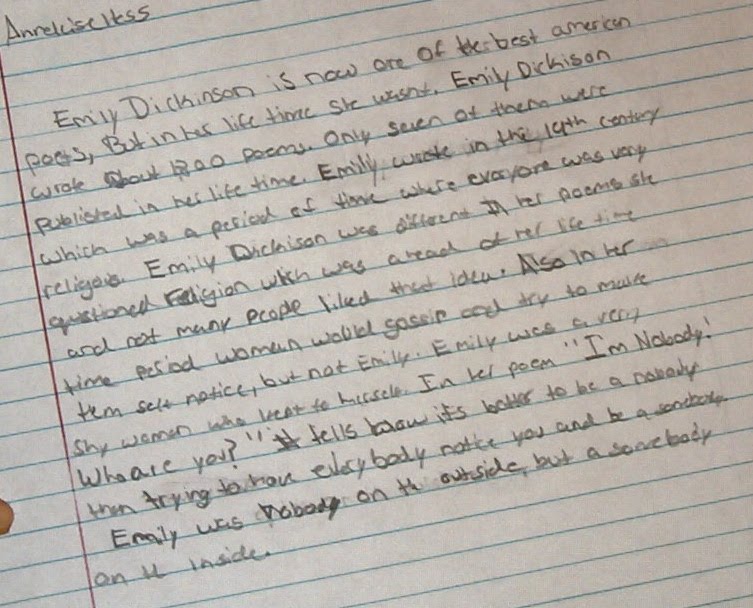 Emily Dickinson is now one of the best american
poets, But in her life time she wasnt. Emily Dickison
wrote about 1800 poems. Only seven of them were
published in her life time. Emily wrote in the 19th century
which was a period of time where everyone was very
religous. Emily Dickison was different In her poems she
questioned religion which was ahead of her life time
and not many people liked that idea. Also In her
time period woman would gossip and try to make
them self notice, but not Emily. Emily was a very
shy women who kept to herself. In her poem "I'm Nobody!
Who are you?" It tells how it's better to be a nobody
then trying to have everybody notice you and be a somebody
Emily was nobody on the outside, but a somebody
on the inside.